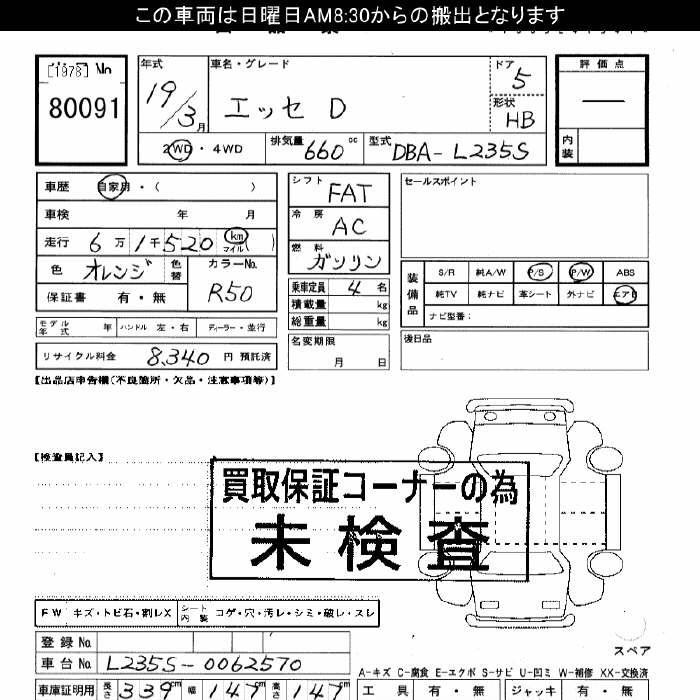 この車両は日曜日AM8:30からの搬出となります
[1978] No
80091
年式 19/3月
車名・グレード エッセ D
ドア 5
形状 HB
評価点 ―
内装
2WD・4WD
排気量 660cc
型式 DBA-L235S
車歴 自家用・( )
車検 年 月
走行 6万1千520 km マイル( )
色 オレンジ 色替
カラーNo. R50
保証書 有・無
シフト FAT
冷房 AC
燃料 ガソリン
乗車定員 4名
積載量 kg
総重量 kg
セールスポイント
装備品
S/R 純A/W P/S P/W ABS
純TV 純ナビ 革シート 外ナビ エアB
ナビ型番:
モデル年式 年 ハンドル 左・右 ディーラー・並行
名変期限 月 日
後日品
リサイクル料金 8,340円 預託済
【出品店申告欄(不良箇所・欠品・注意事項等)】
【検査員記入】
買取保証コーナーの為
未検査
FW キズ・トビ石・割レX シート内装 コゲ・穴・汚レ・シミ・破レ・スレ
スペア
登録No.
車台No. L235S-0062570
A-キズ C-腐食 E-エクボ S-サビ U-凹ミ W-補修 XX-交換済
車庫証明用 長さ 339cm 幅 147cm 高さ 147cm
工具 有・無 ジャッキ 有・無